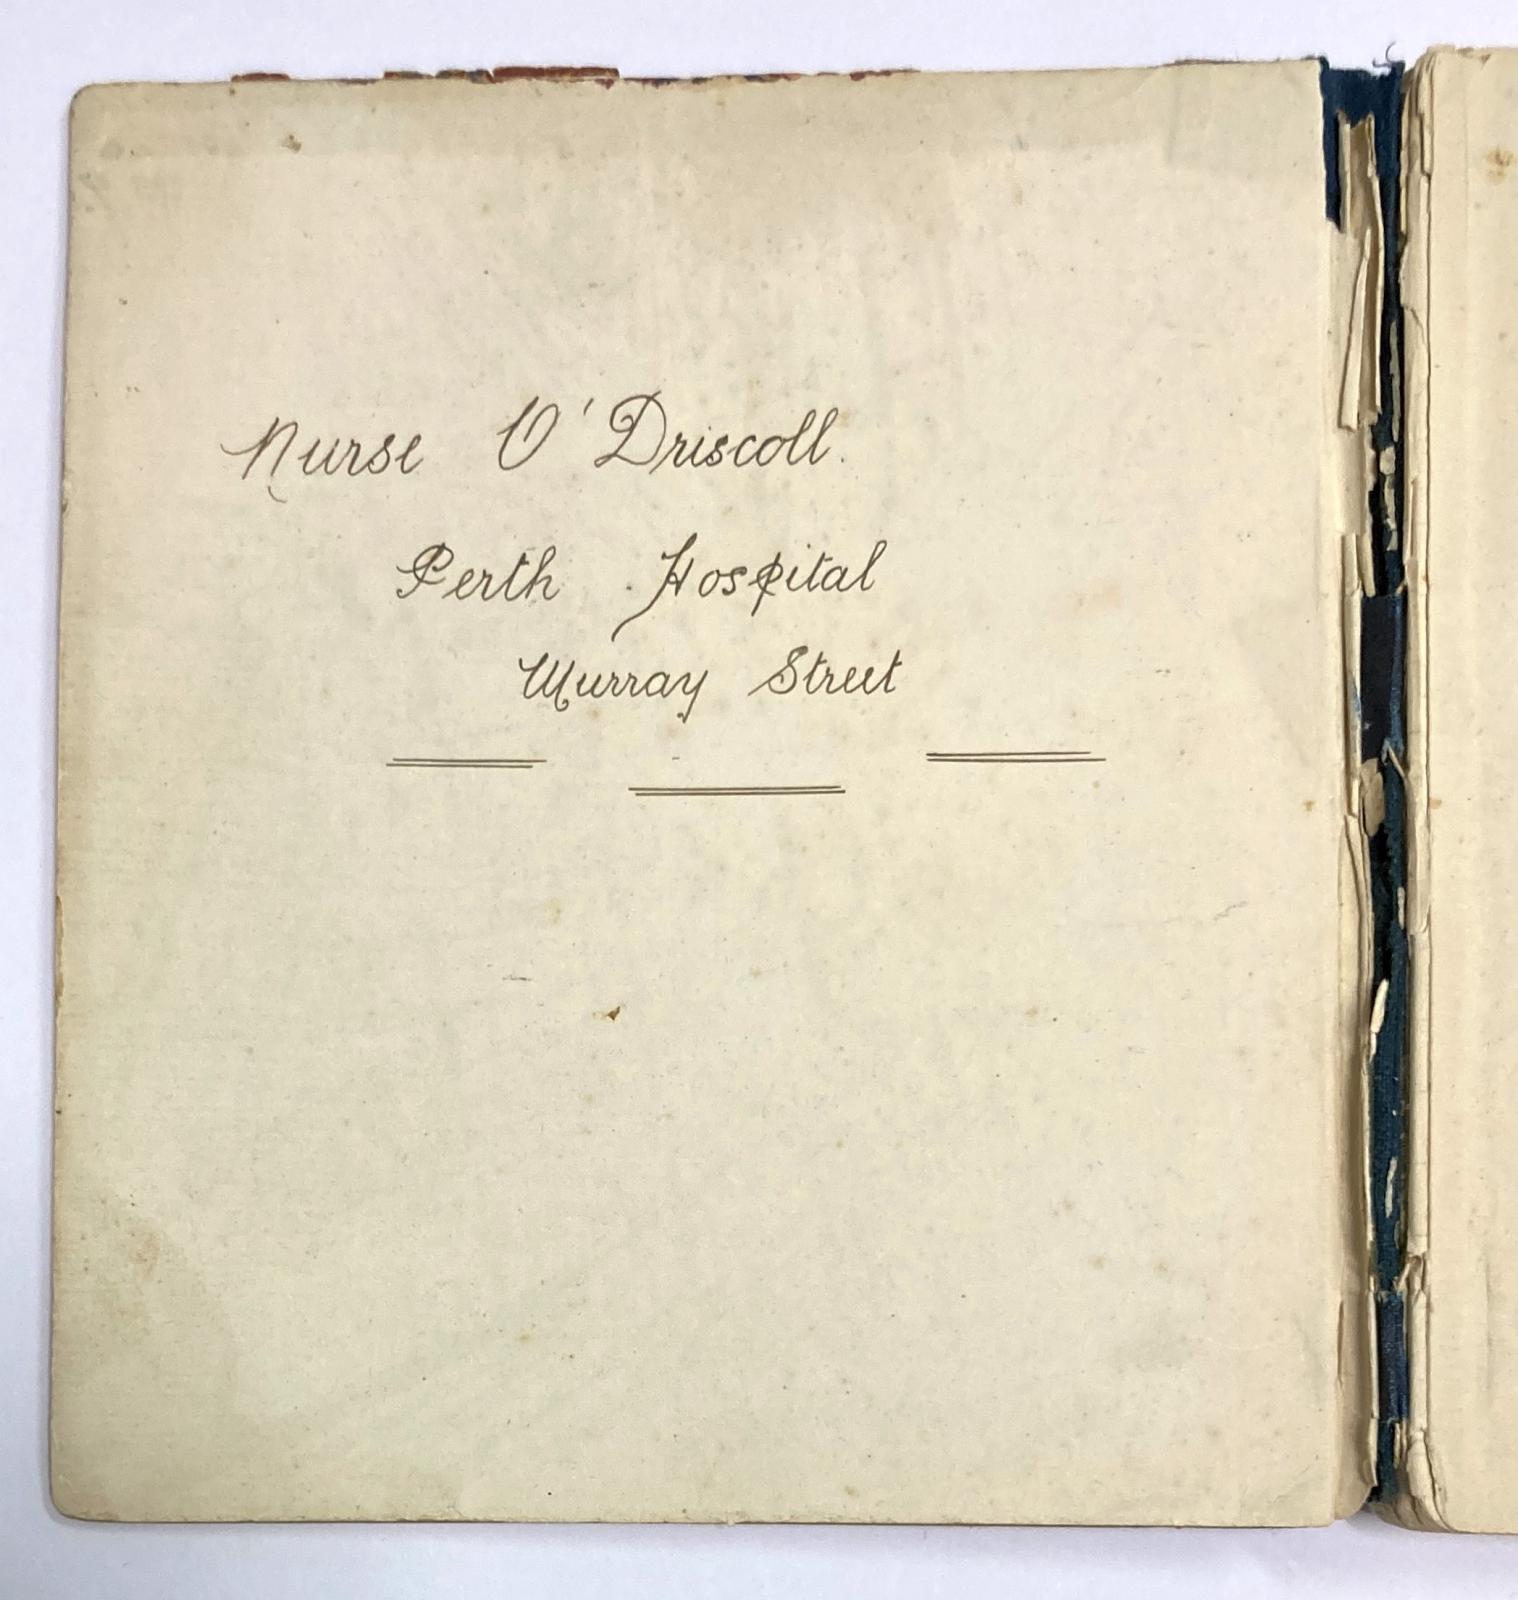 Nurse O'Driscoll.
Perth Hospital
Murray Street